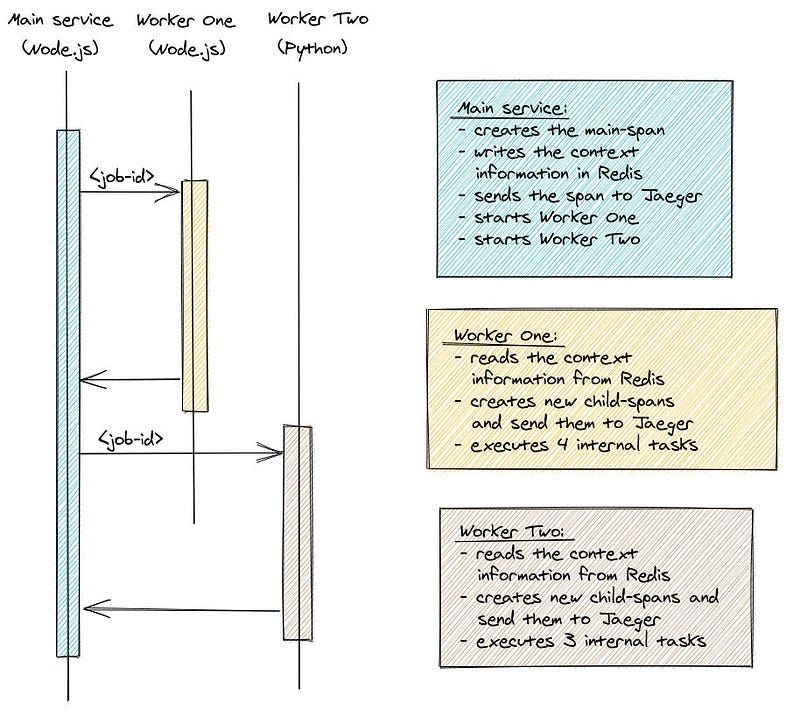 Main service Worker One Worker Two
(Node.js) (Node.js) (Python)
<job-id>
<job-id>
Main service:
- creates the main-span
- writes the context
information in Redis
- sends the span to Jaeger
- starts Worker One
- starts Worker Two
Worker One:
- reads the context
information from Redis
- creates new child-spans
and send them to Jaeger
- executes 4 internal tasks
Worker Two:
- reads the context
information from Redis
- creates new child-spans and
send them to Jaeger
- executes 3 internal tasks